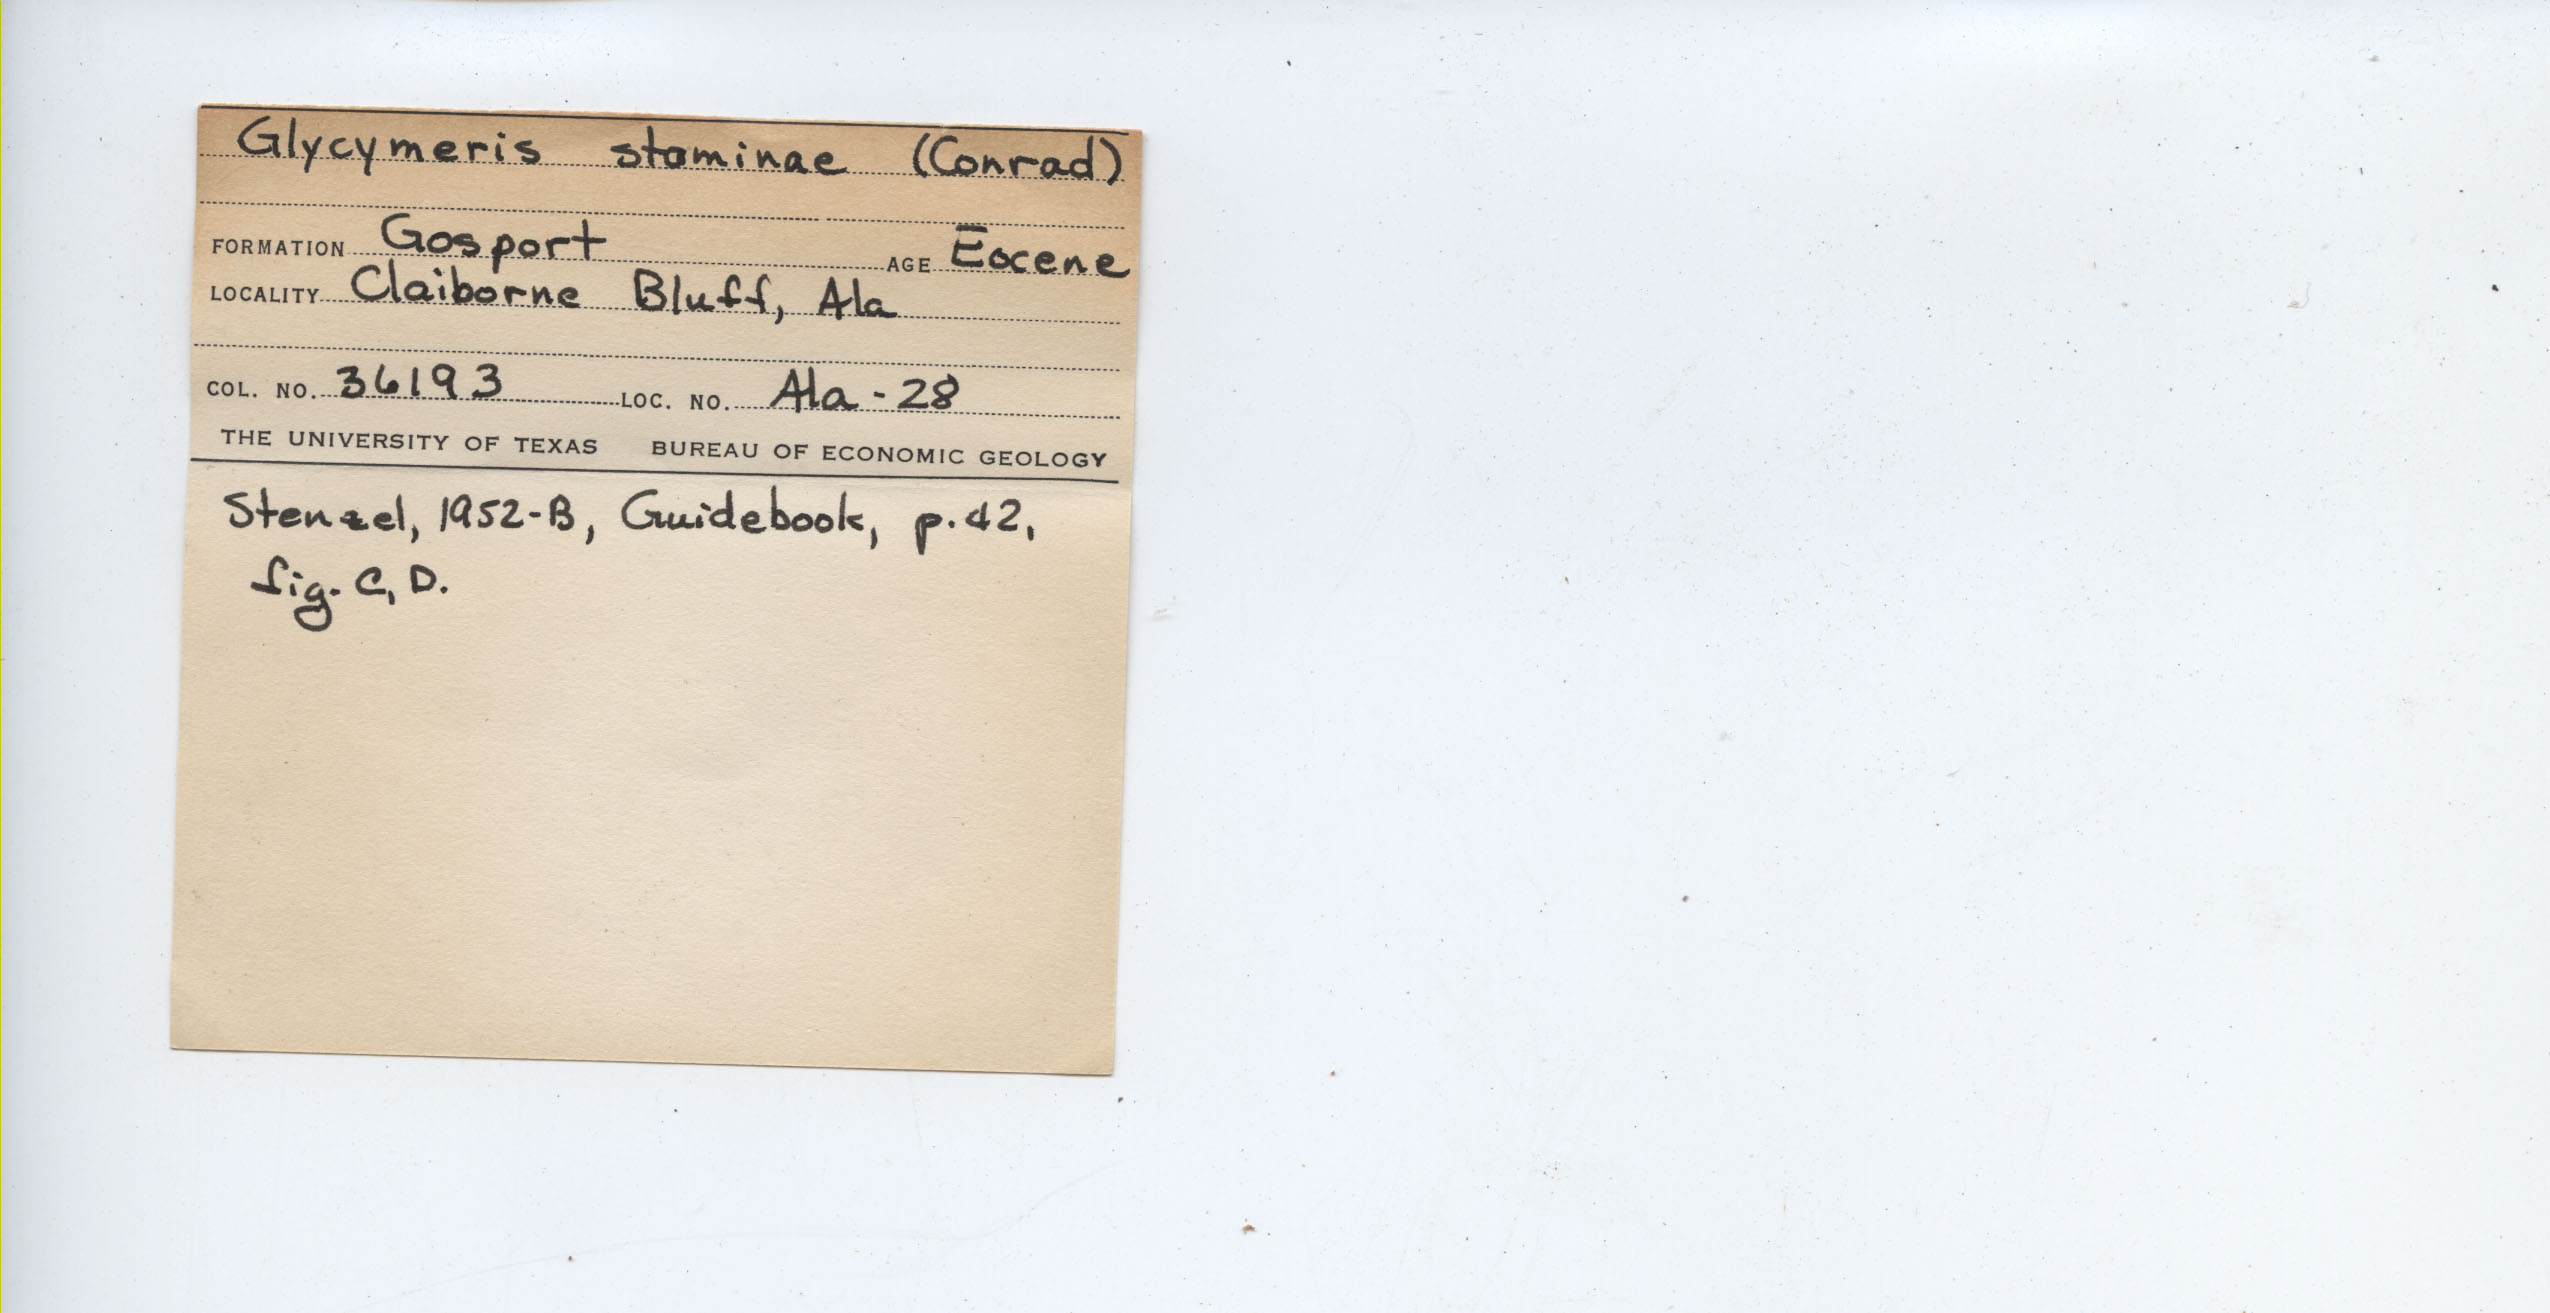 Glycymeris staminae (Conrad)
FORMATION Gosport AGE Eocene
LOCALITY Claiborne Bluff, Ala
COL. NO. 36193 LOC. NO. Ala-28
THE UNIVERSITY OF TEXAS BUREAU OF ECONOMIC GEOLOGY
Stenzel, 1952-B, Guidebook, p. 42,
fig. C, D.